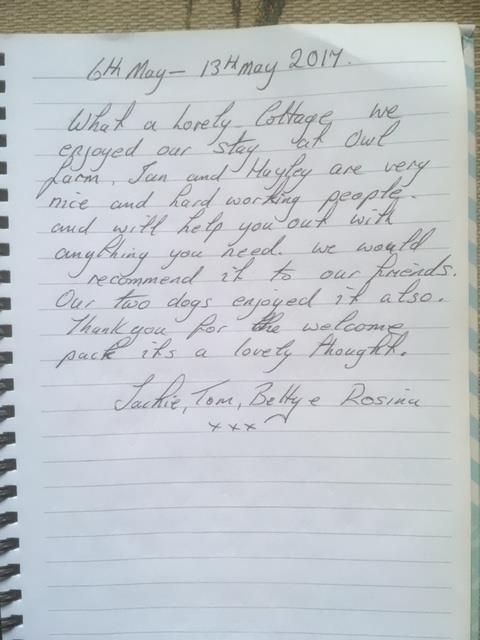 6th May - 13th may 2017.
What a Lovely Cottage we
enjoyed our stay at Owl
farm, Ian and Hayley are very
nice and hard working people.
and will help you out with
anything you need. we would
recommend it to our friends.
Our two dogs enjoyed it also.
Thank you for the welcome
pack its a lovely thought.
Jackie, Tom, Betty e Rosina
xxx